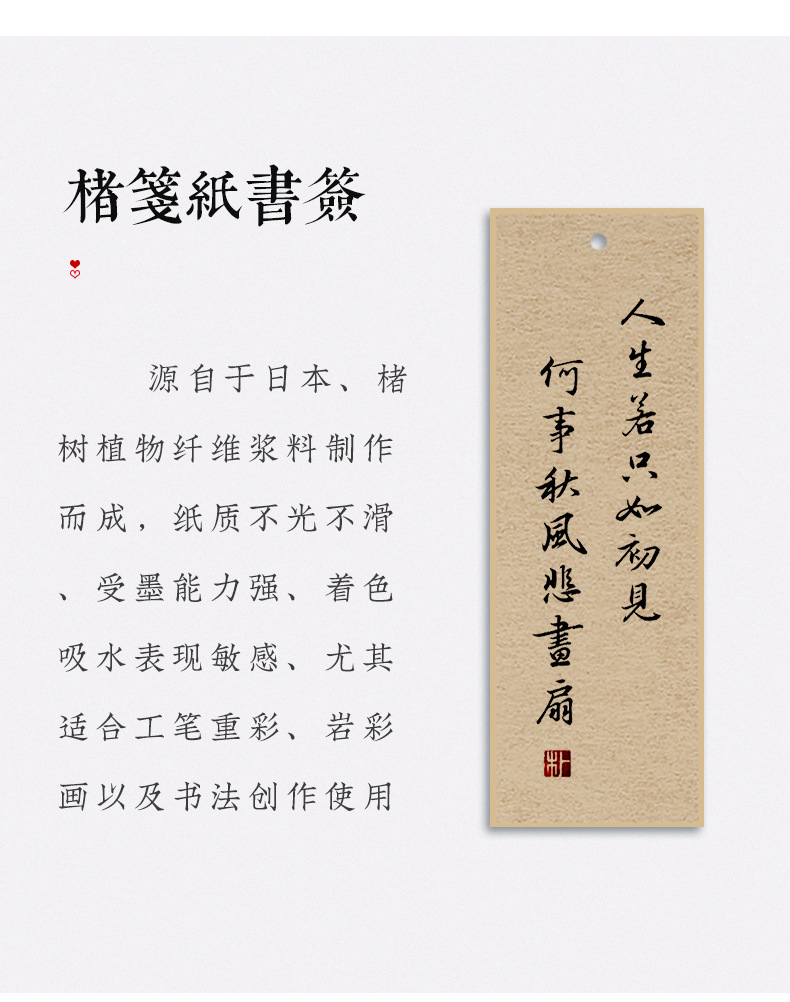 楮箋紙書簽
源自于日本、楮
树植物纤维浆料制作
而成，纸质不光不滑
、受墨能力强、着色
吸水表现敏感、尤其
适合工笔重彩、岩彩
画以及书法创作使用
人生若只如初見
何事秋風悲畫扇